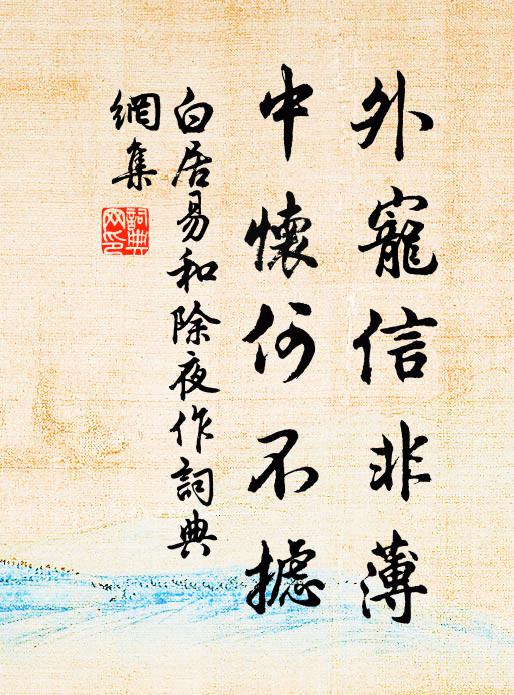 外寵信非薄
中懷何不攄
白居易和除夜作詞典
網集
詞典
网印